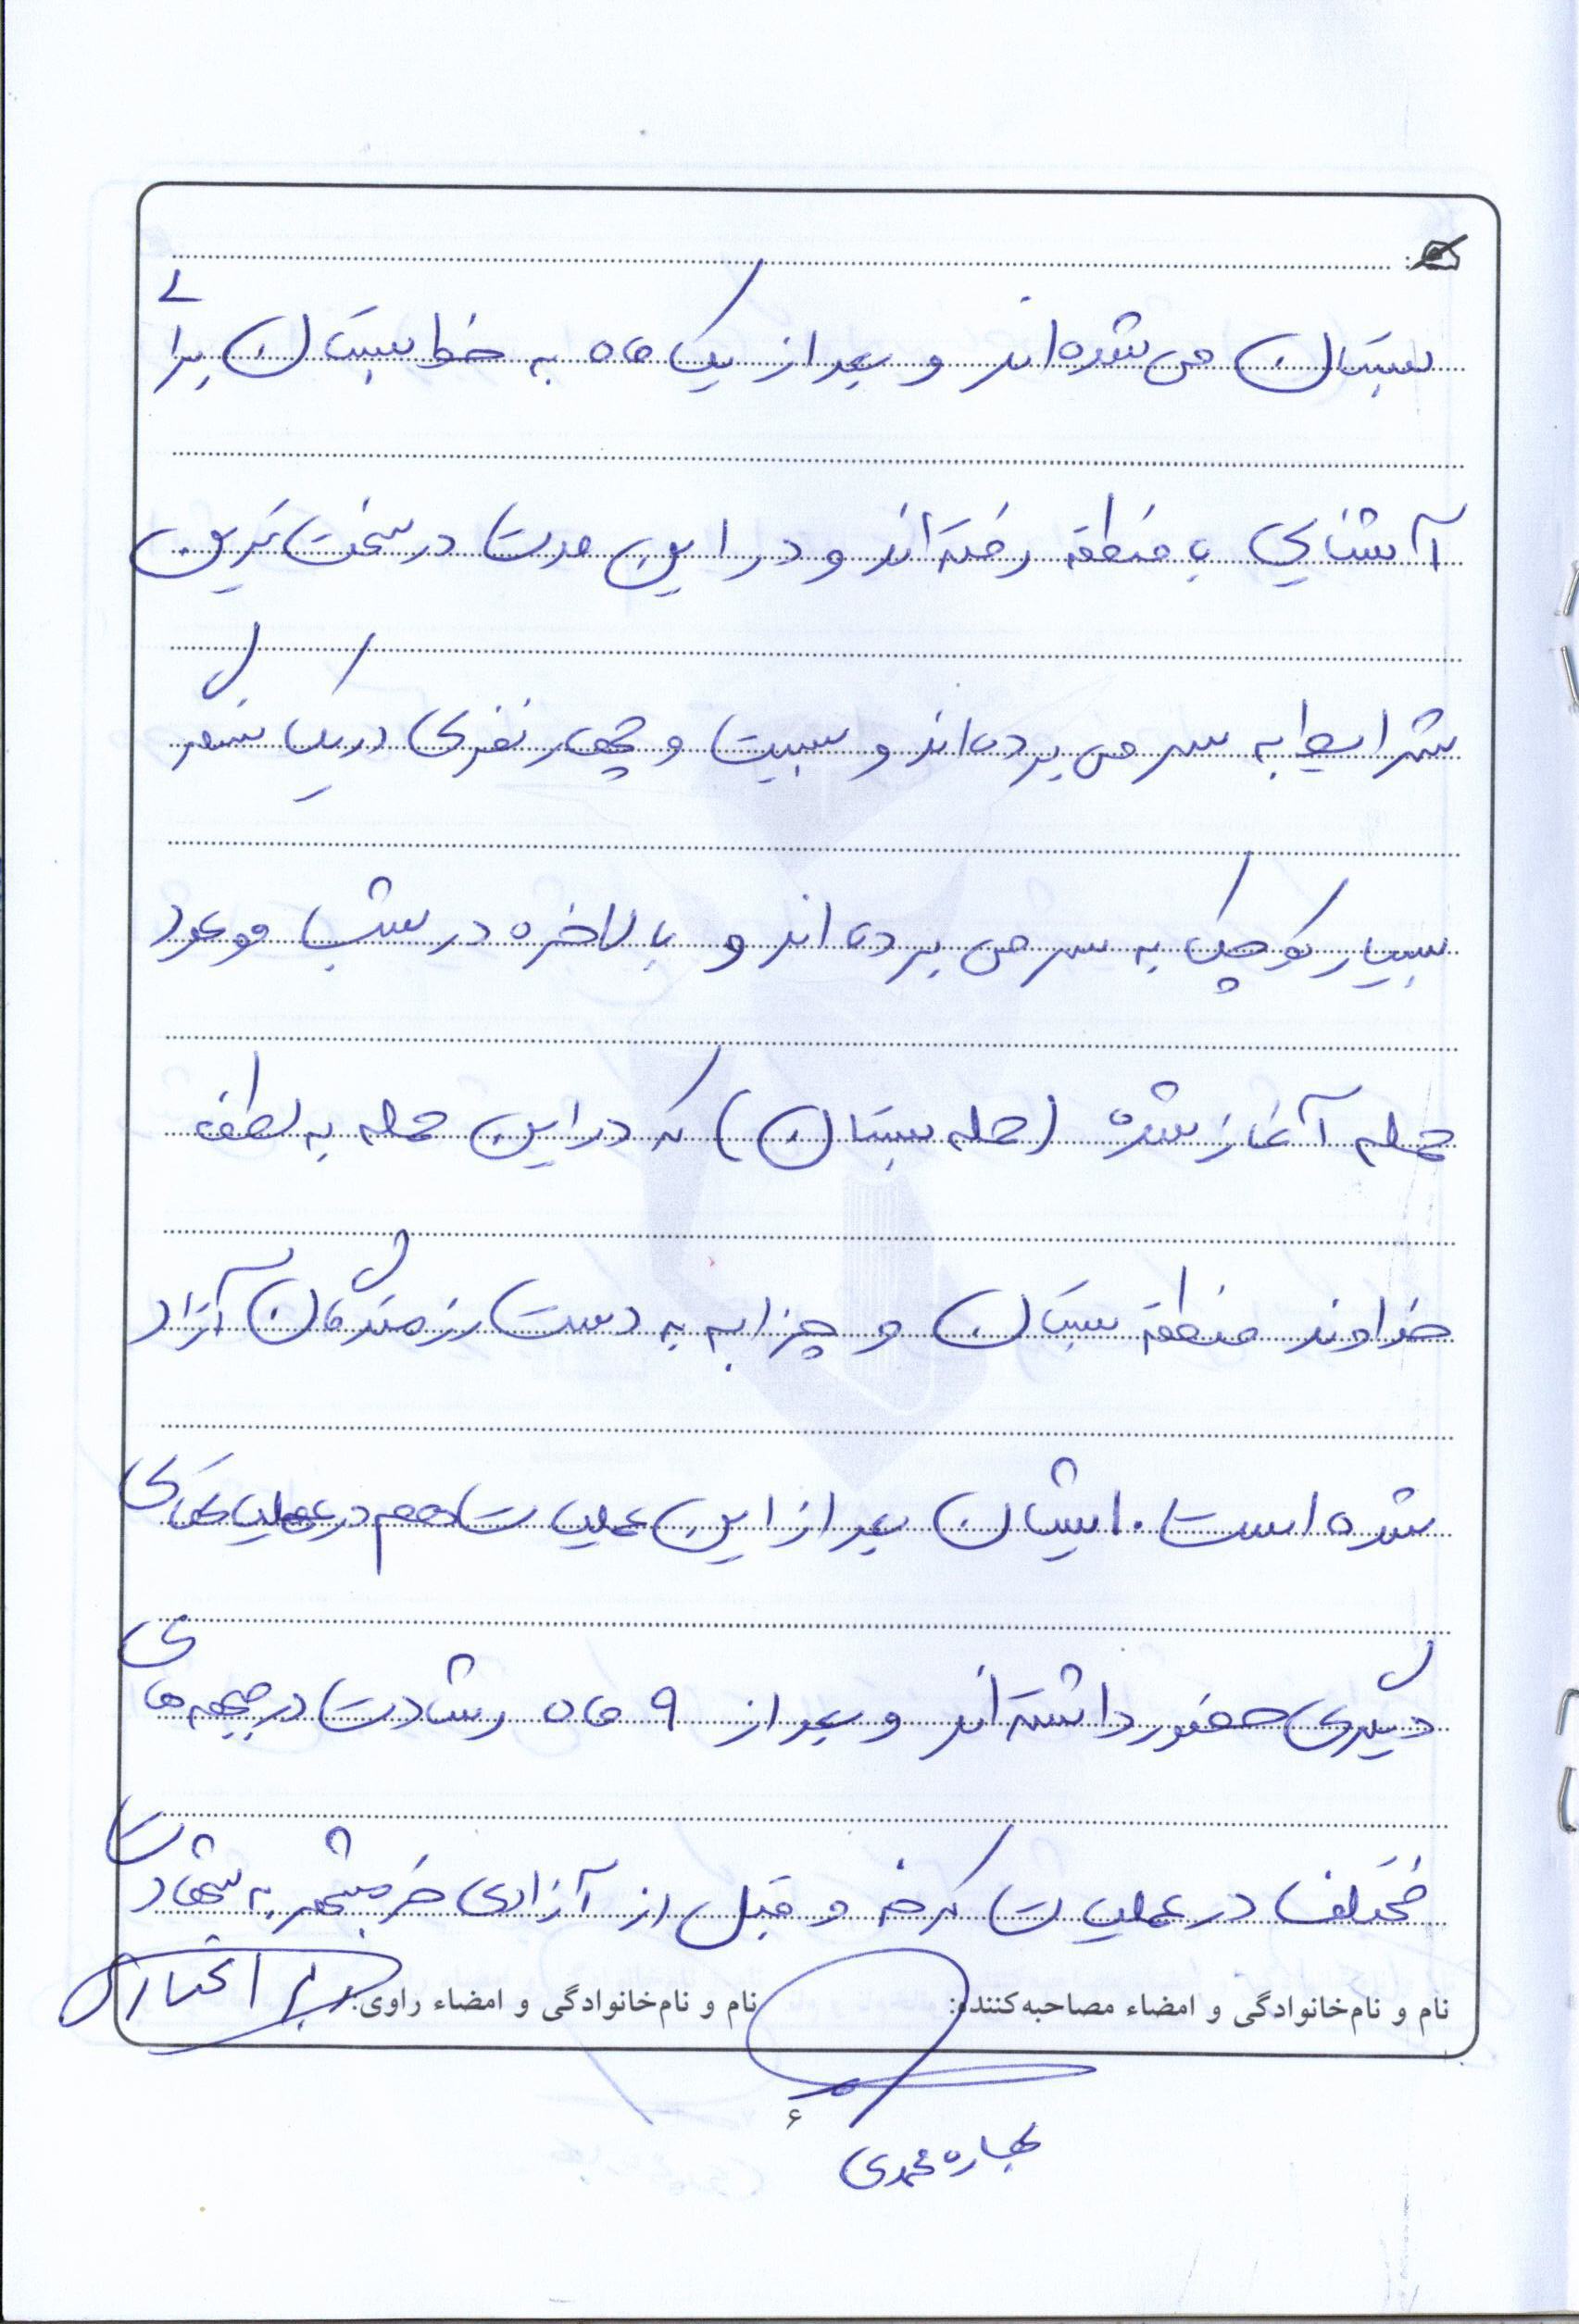 بستان می شده اند و بعد از یک ماه به خط بستان برای
آشنایی با منطقه رفته اند و در این مدت در سخت ترین
شرایط به سر می برده اند و بیست و چهار نفری در یک سنگر
بسیار کوچک به سر می برده اند و بالاخره در شب موعود
حمله آغاز شده (حمله بستان) که در این حمله به لطف
خداوند منطقه بستان و چزابه به دست رزمندگان آزاد
شده است. ایشان بعد از این عملیات هم در عملیات های
دیگری حضور داشته اند و بعد از ۹ ماه رشادت در جبهه های
مختلف در عملیات کرخه و قبل از آزادی خرمشهر به شهادت
نام و نام‌خانوادگی و امضاء مصاحبه‌کننده:
نام و نام‌خانوادگی و امضاء راوی:
۶
بهاره محمدی